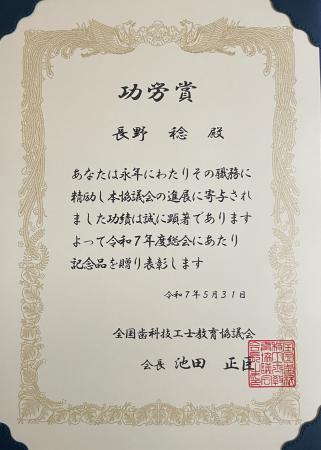 功労賞
長野 稔 殿
あなたは永年にわたりその職務に
精励し本協議会の進展に寄与され
ました功績は誠に顕著であります
よって令和7年度総会にあたり
記念品を贈り表彰します
令和7年5月31日
全国歯科技工士教育協議会
会長 池田 正臣